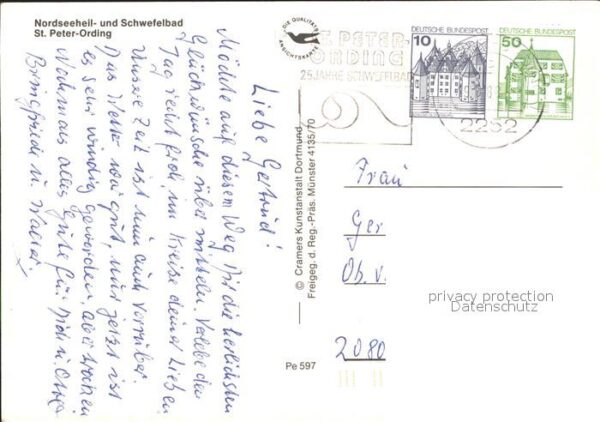 Nordseeheil- und Schwefelbad
St. Peter-Ording
DIE QUALITÄTS
ANSICHTSKARTE
ST. PETER-
ORDING
25 JAHRE SCHWEFELBAD
DEUTSCHE BUNDESPOST
10
DEUTSCHE BUNDESPOST
50
2252
Liebe Gertrud!
Möchte auf diesem Weg Dir die herzlichsten
Glückwünsche übermitteln. Verlebe den
Tag recht froh, im Kreise deiner Lieben
Unsere Zeit ist nun auch vorrüber.
Das Wetter war gut, nur jetzt ist
es sehr windig geworden, aber trocken
Nochmals alles Gute für Dich u.
Bringfriede u.
© Cramers Kunstanstalt Dortmund
Freigeg. d. Reg.-Präs. Münster 4135/70
Pe 597
Frau
Ger
Ob. V.
2080
privacy protection
Datenschutz